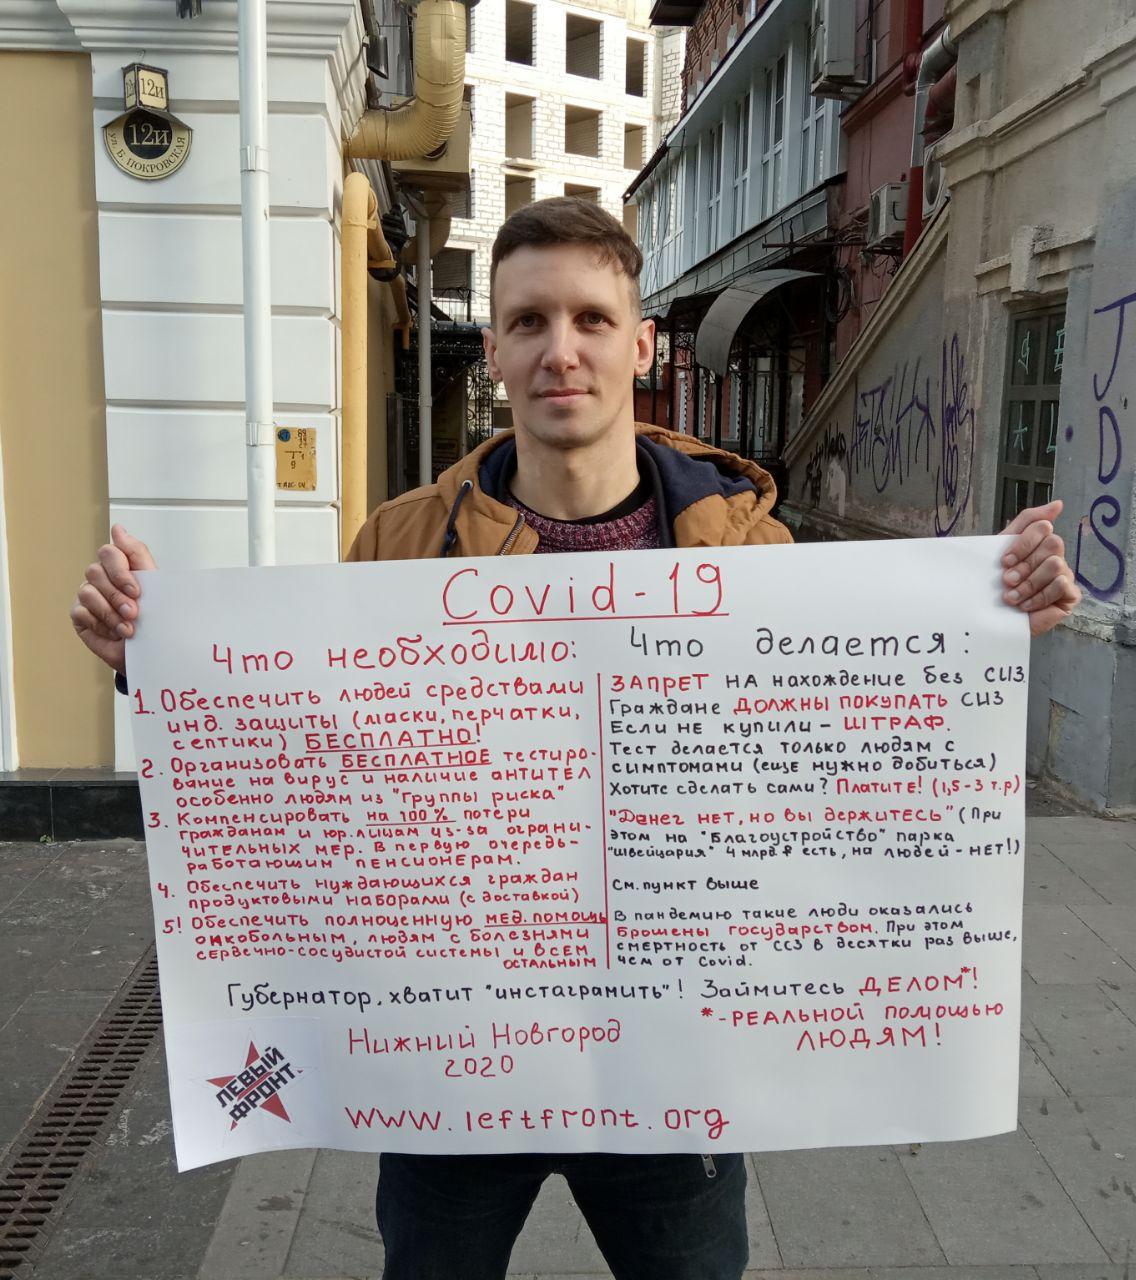 12и
12и
ул. Б. ПОКРОВСКАЯ
JDS
Covid-19
Что необходимо:
1. Обеспечить людей средствами
инд. защиты (маски, перчатки,
септики) БЕСПЛАТНО!
2. Организовать БЕСПЛАТНОЕ тестиро-
вание на вирус и наличие антител
особенно людям из "Группы риска"
3. Компенсировать на 100% потери
гражданам и юр.лицам из-за ограни-
чительных мер. В первую очередь-
работающим пенсионерам.
4. Обеспечить нуждающихся граждан
продуктовыми наборами (с доставкой)
5! Обеспечить полноценную мед. помощь
онкобольным, людям с болезнями
сердечно-сосудистой системы и всем
остальным
Что делается:
ЗАПРЕТ НА нахождение без СИЗ.
Граждане ДОЛЖНЫ ПОКУПАТЬ СИЗ
Если не купили - ШТРАФ.
Тест делается только людям с
симптомами (еще нужно добиться)
Хотите сделать сами? Платите! (1,5-3 т.р)
"Денег нет, но вы держитесь" (При
этом на "Благоустройство" парка
"Швейцария" 4 млрд.₽ есть, на людей-НЕТ!)
См. пункт выше
В пандемию такие люди оказались
брошены государством. При этом
смертность от ССЗ в десятки раз выше,
чем от Covid.
Губернатор, хватит "инстаграмить"! Займитесь ДЕЛОМ*!
*-РЕАЛЬНОЙ помощью
ЛЮДЯМ!
Нижний Новгород
2020
ЛЕВЫЙ
ФРОНТ.
www.leftfront.org